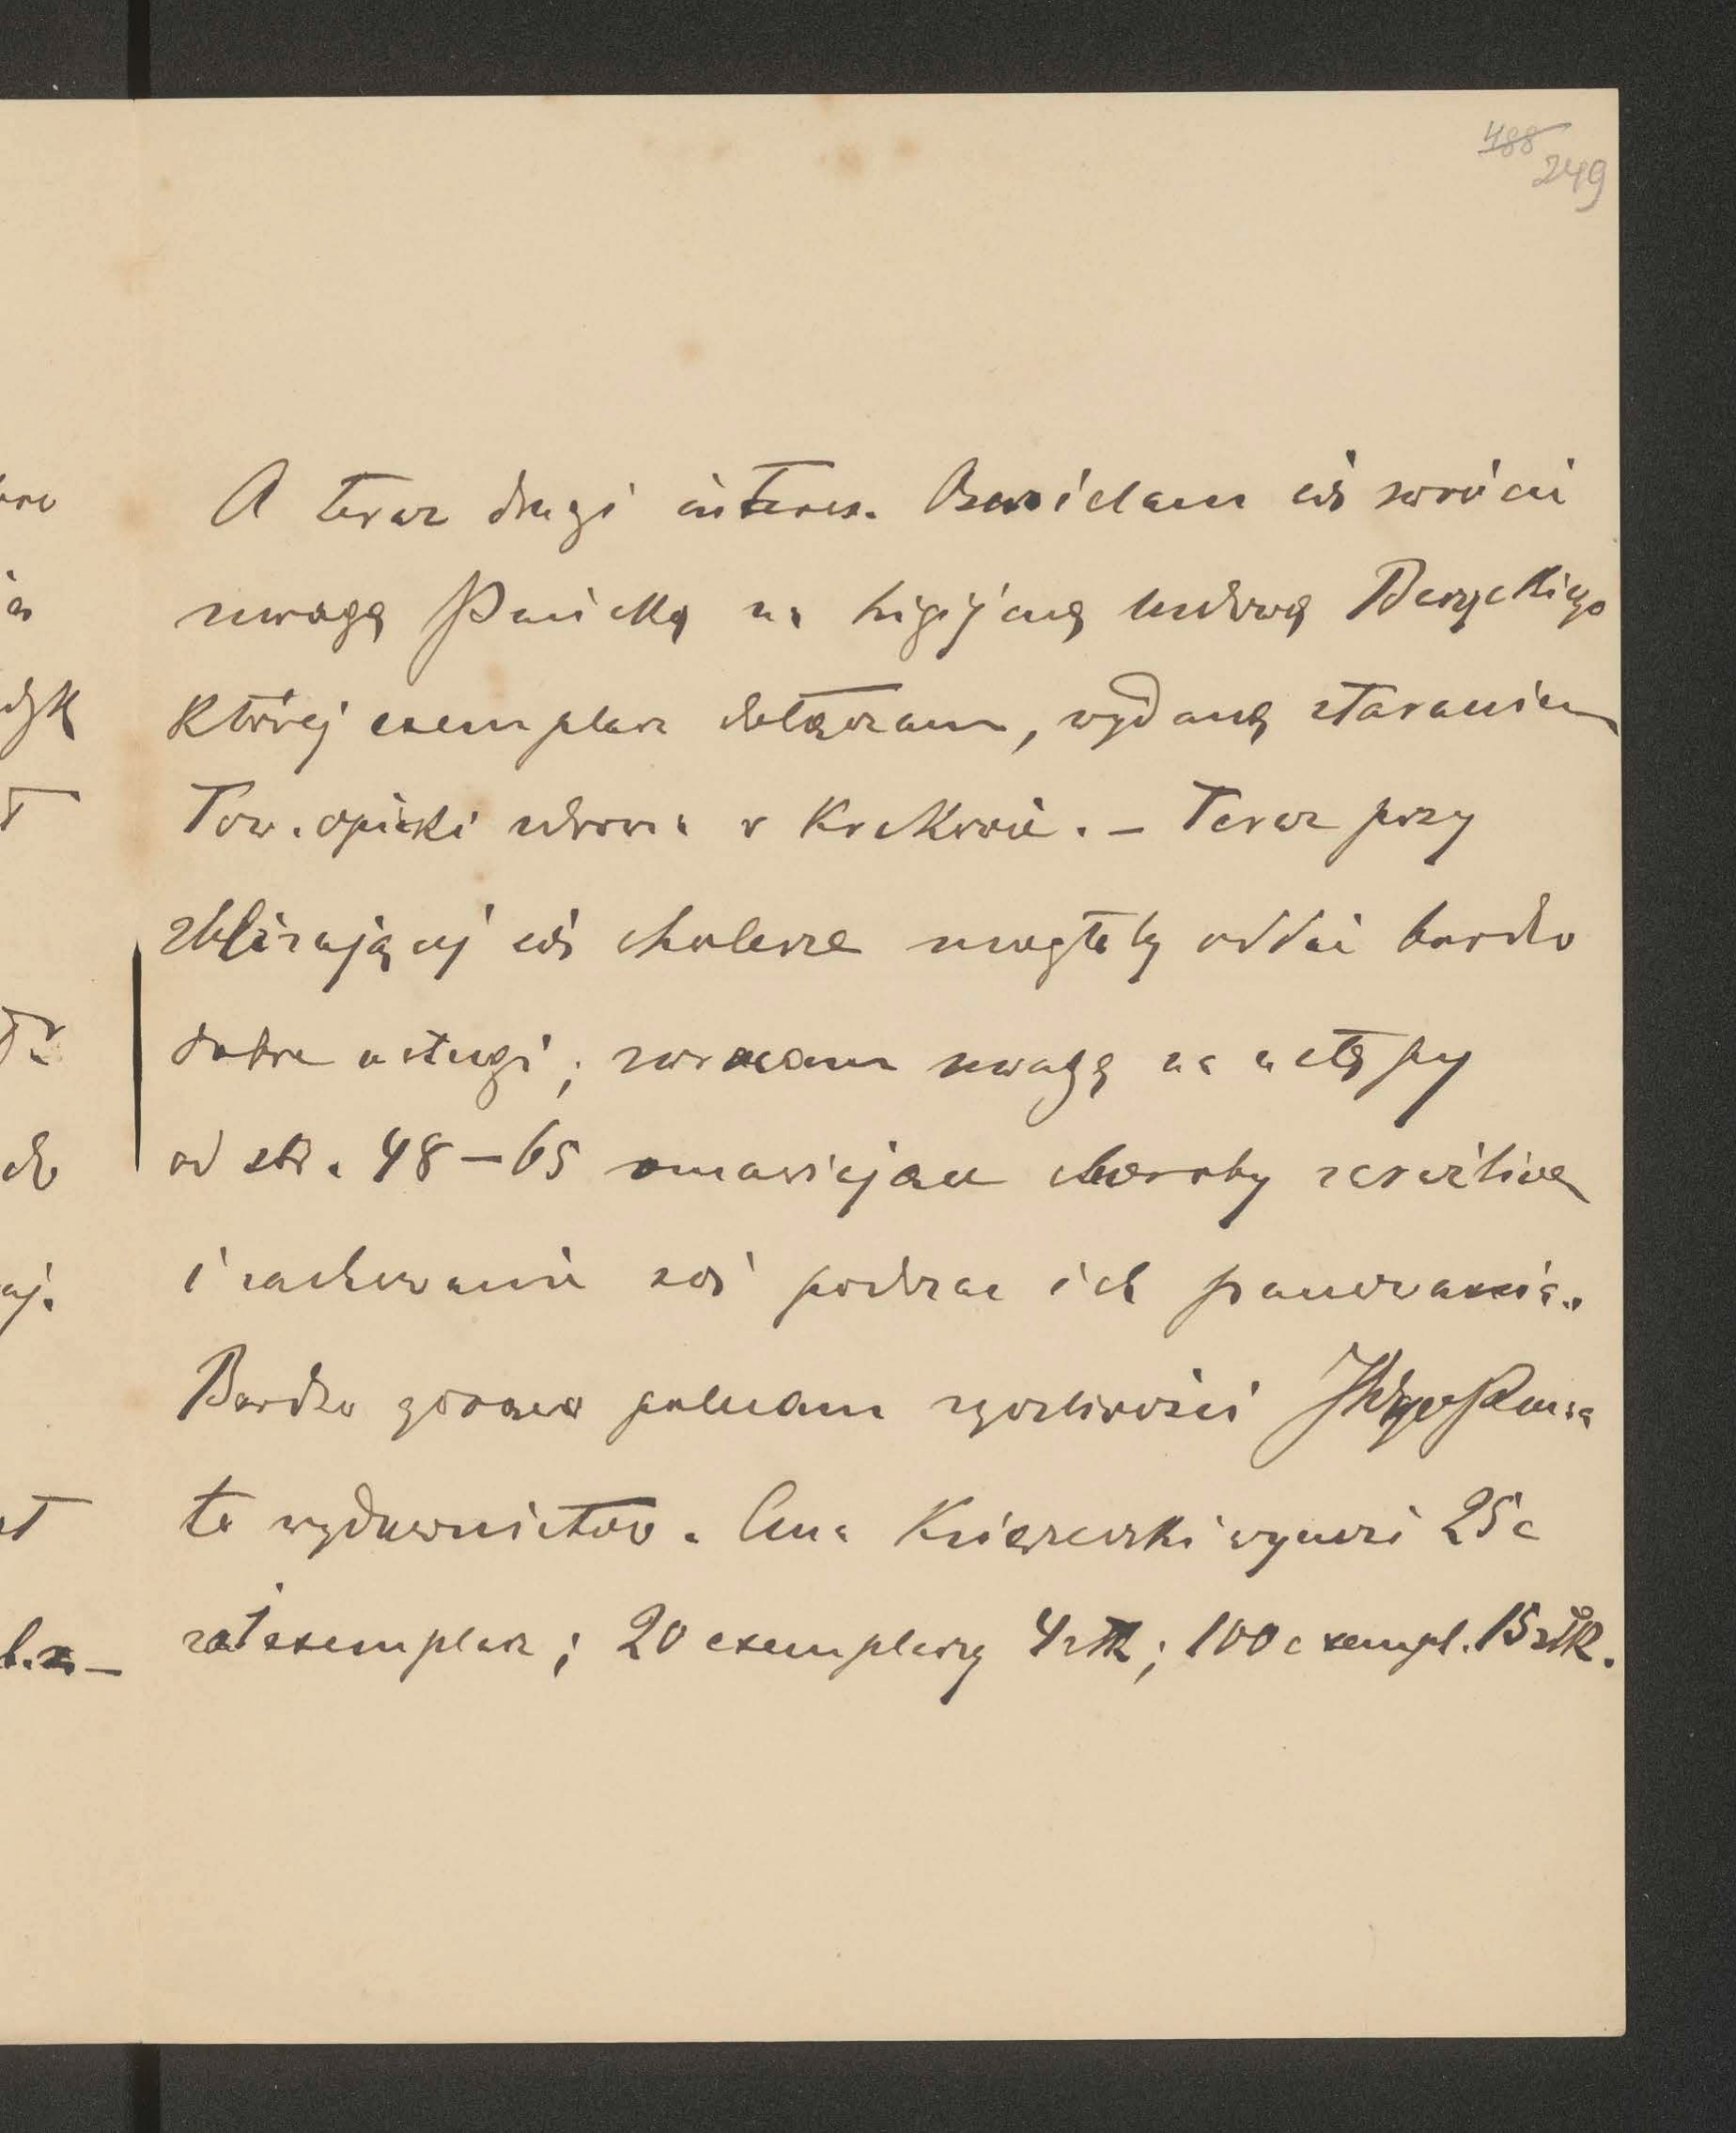 488
249
A teraz drugi interes. Ośmielam się zwrócić
uwagę Pańską na higijenę ludową
której exemplarz dołączam, wydaną staraniem
Tow. opieki zdrowia w Krakowie. – Teraz przy
zbliżającej się cholerze mogłaby oddać bardzo
dobre usługi; zwracam uwagę na ustępy
od str. 48–65 omawiające choroby zaraźliwe
i zachowanie się podczas ich panowania.
Bardzo gorąco polecam życzliwości Pana
to wydawnictwo. Cena Księgarski wynosi 25 c
za 1 exemplarz; 20 exemplarzy 4 złr; 100 exempl. 15 złr.